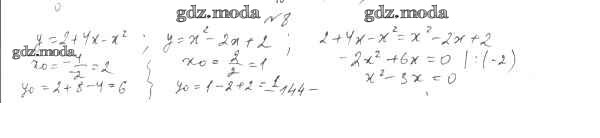 gdz.moda №8 gdz.moda
y=2+4x-x² ; y=x²-2x+2 ; 2+4x-x²=x²-2x+2
gdz.moda
x₀=-4/-2=2 x₀=2/2=1 -2x²+6x=0 |:(-2)
y₀=2+8-4=6 y₀=1-2+2=1 x²-3x=0
-144-